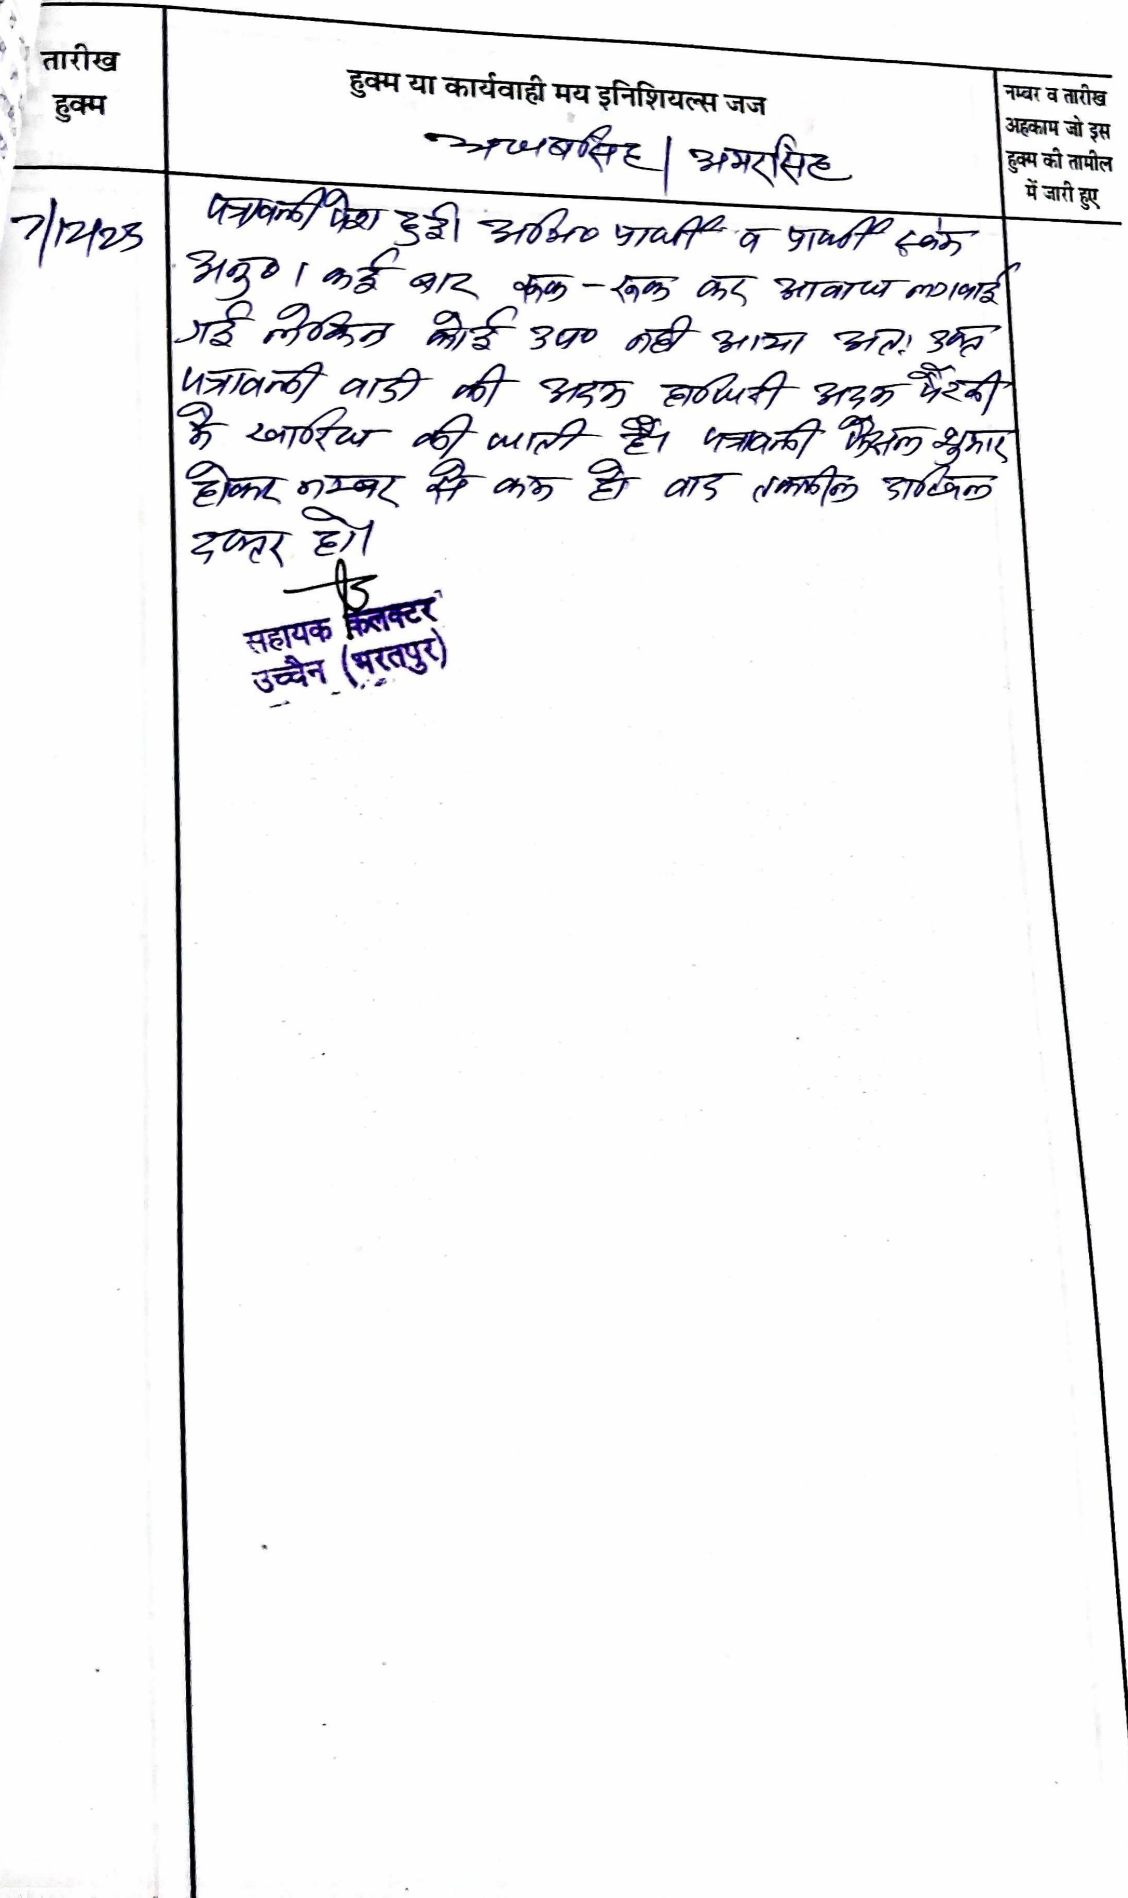 तारीख
हुक्म
हुक्म या कार्यवाही मय इनिशियल्स जज
अजबसिंह / अमरसिंह
नम्बर व तारीख
अहकाम जो इस
हुक्म की तामील
में जारी हुए
7/12/23
पत्रावली पेश हुई। अभि० प्रार्थी व प्रार्थी स्वंम
अनु०। कई बार रूक-रूक कर आवाज लगवाई
गई लेकिन कोई उप० नही आया अतः उक्त
पत्रावली वादी की अदम हाजिरी अदम पैरवी
मे खारिज की जाती है। पत्रावली फैसल शुमार
होकर नम्बर से कम हो वाद तकमील दाखिल
दफ्तर हो।
सहायक कलक्टर
उच्चैन (भरतपुर)